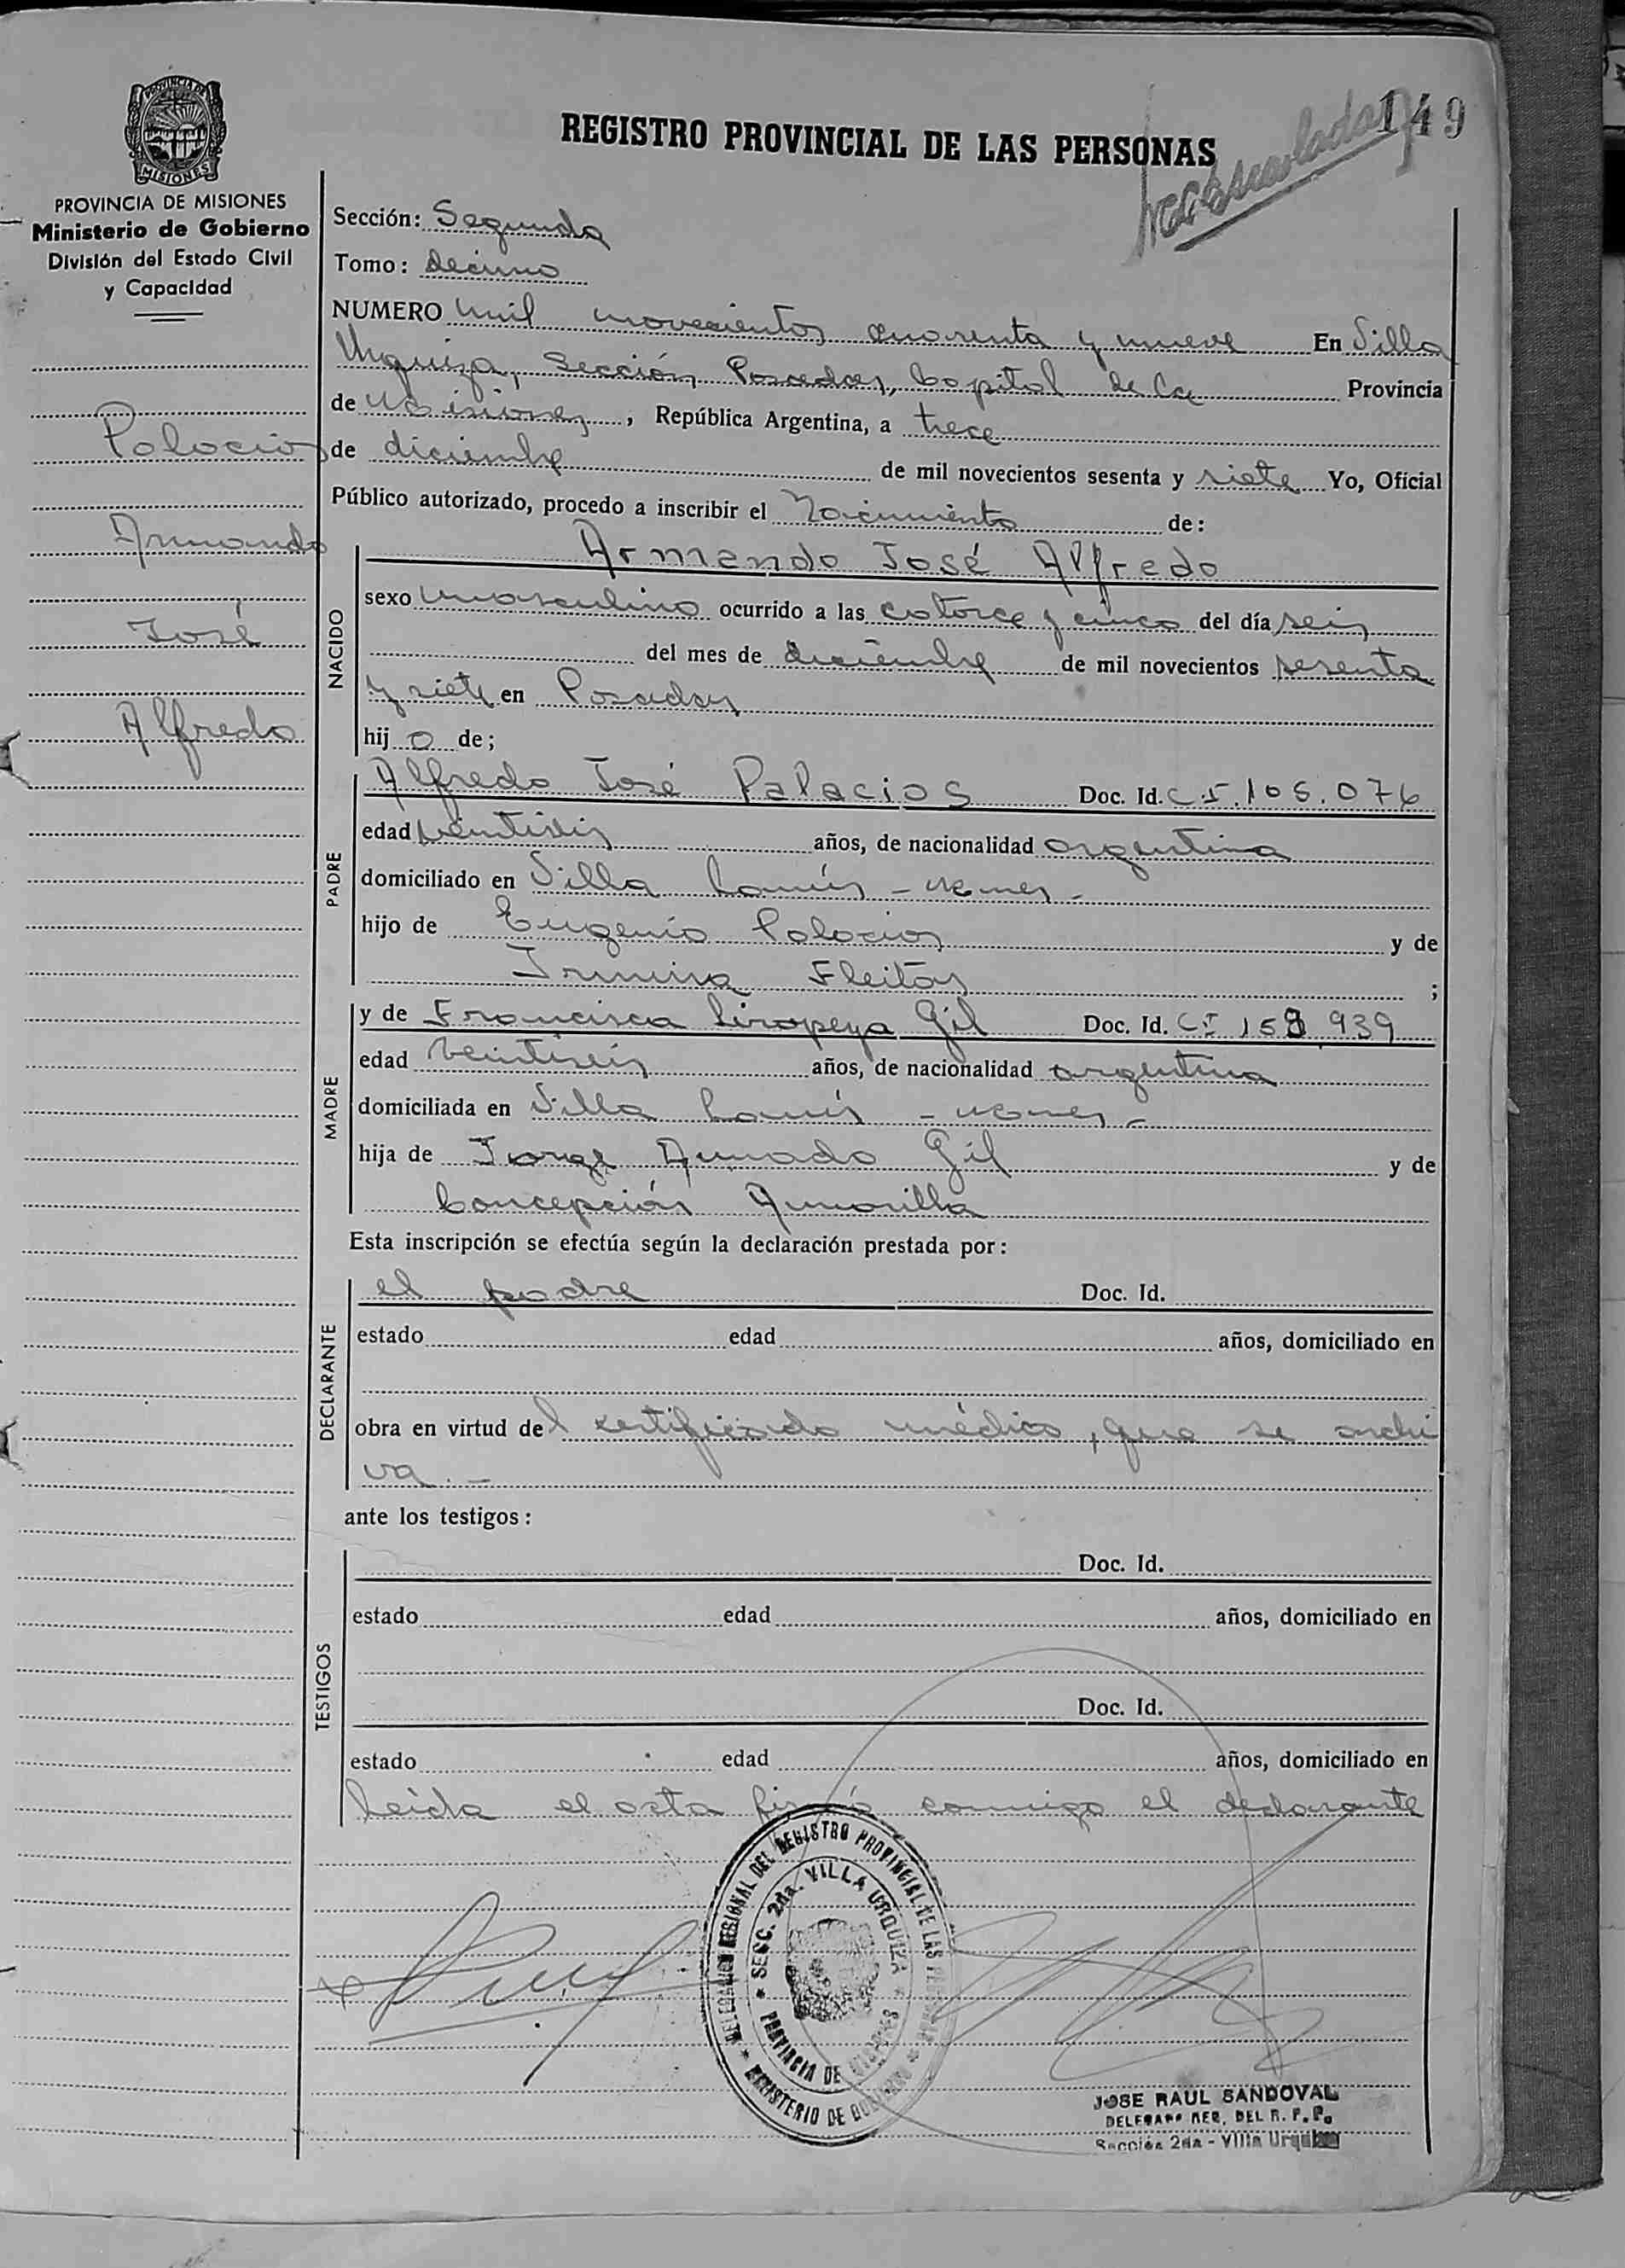 149
REGISTRO PROVINCIAL DE LAS PERSONAS
PROVINCIA DE
MISIONES
PROVINCIA DE MISIONES
Ministerio de Gobierno
División del Estado Civil
y Capacidad
Palacios
Armando
José
Alfredo
Sección: Segunda
Tomo: décimo
NUMERO mil novecientos cuarenta y nueve En Villa
Urquiza, Sección Posadas, Capital de la Provincia
de Misiones, República Argentina, a trece
de diciembre de mil novecientos sesenta y siete Yo, Oficial
Público autorizado, procedo a inscribir el Nacimiento de:
NACIDO
Armando José Alfredo
sexo masculino ocurrido a las catorce y cinco del día seis
del mes de diciembre de mil novecientos sesenta
y siete en Posadas
hij o de;
PADRE
Alfredo José Palacios Doc. Id. C.I. 105.076
edad años, de nacionalidad argentina
domiciliado en Villa Lanús - Mnes -
hijo de Eugenio Palacios y de
Fleitas ;
MADRE
y de Francisca Liropeya Gil Doc. Id. CI 158.939
edad veintiseis años, de nacionalidad argentina
domiciliada en Villa Lanús - Mnes -
hija de Jorge Amado Gil y de
Concepción Amarilla
Esta inscripción se efectúa según la declaración prestada por:
DECLARANTE
el padre Doc. Id.
estado edad años, domiciliado en
obra en virtud del certificado médico, que se archi
va.-
ante los testigos:
TESTIGOS
Doc. Id.
estado edad años, domiciliado en
Doc. Id.
estado edad años, domiciliado en
Leída el acta firmó conmigo el declarante
DELEGACION REGIONAL DEL REGISTRO PROVINCIAL DE LAS PERSONAS
SECC. 2da. VILLA URQUIZA
PROVINCIA DE MISIONES
MINISTERIO DE GOBIERNO
JOSE RAUL SANDOVAL
DELEGADO REG. DEL R. P. P.
Sección 2da - Villa Urquiza